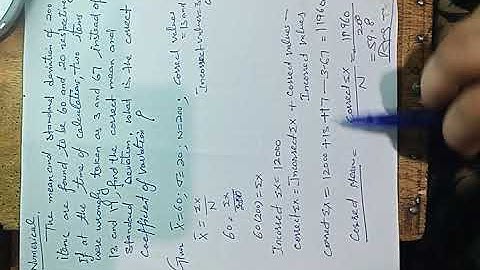 Numerical
The mean and standard deviation of 200
items are found to be 60 and 20 respectively
If at the time of calculation, two items
were wrongly taken as 3 and 67, instead of
13 and 17, find the correct mean and
standard deviation, what is the correct
coefficient of variation?
Given x̄ = 60, σ = 20, N = 200, Correct values = 13 and
x̄ = Σx / N Incorrect values =
60 = Σx / 200
60(200) = Σx
Incorrect Σx = 12000
Correct Σx = Incorrect Σx + Correct values −
Incorrect values
Correct Σx = 12000 + 13 + 17 − 3 − 67 = 11960
Correct Mean = Correct Σx / N = 11960 / 200
= 59.8